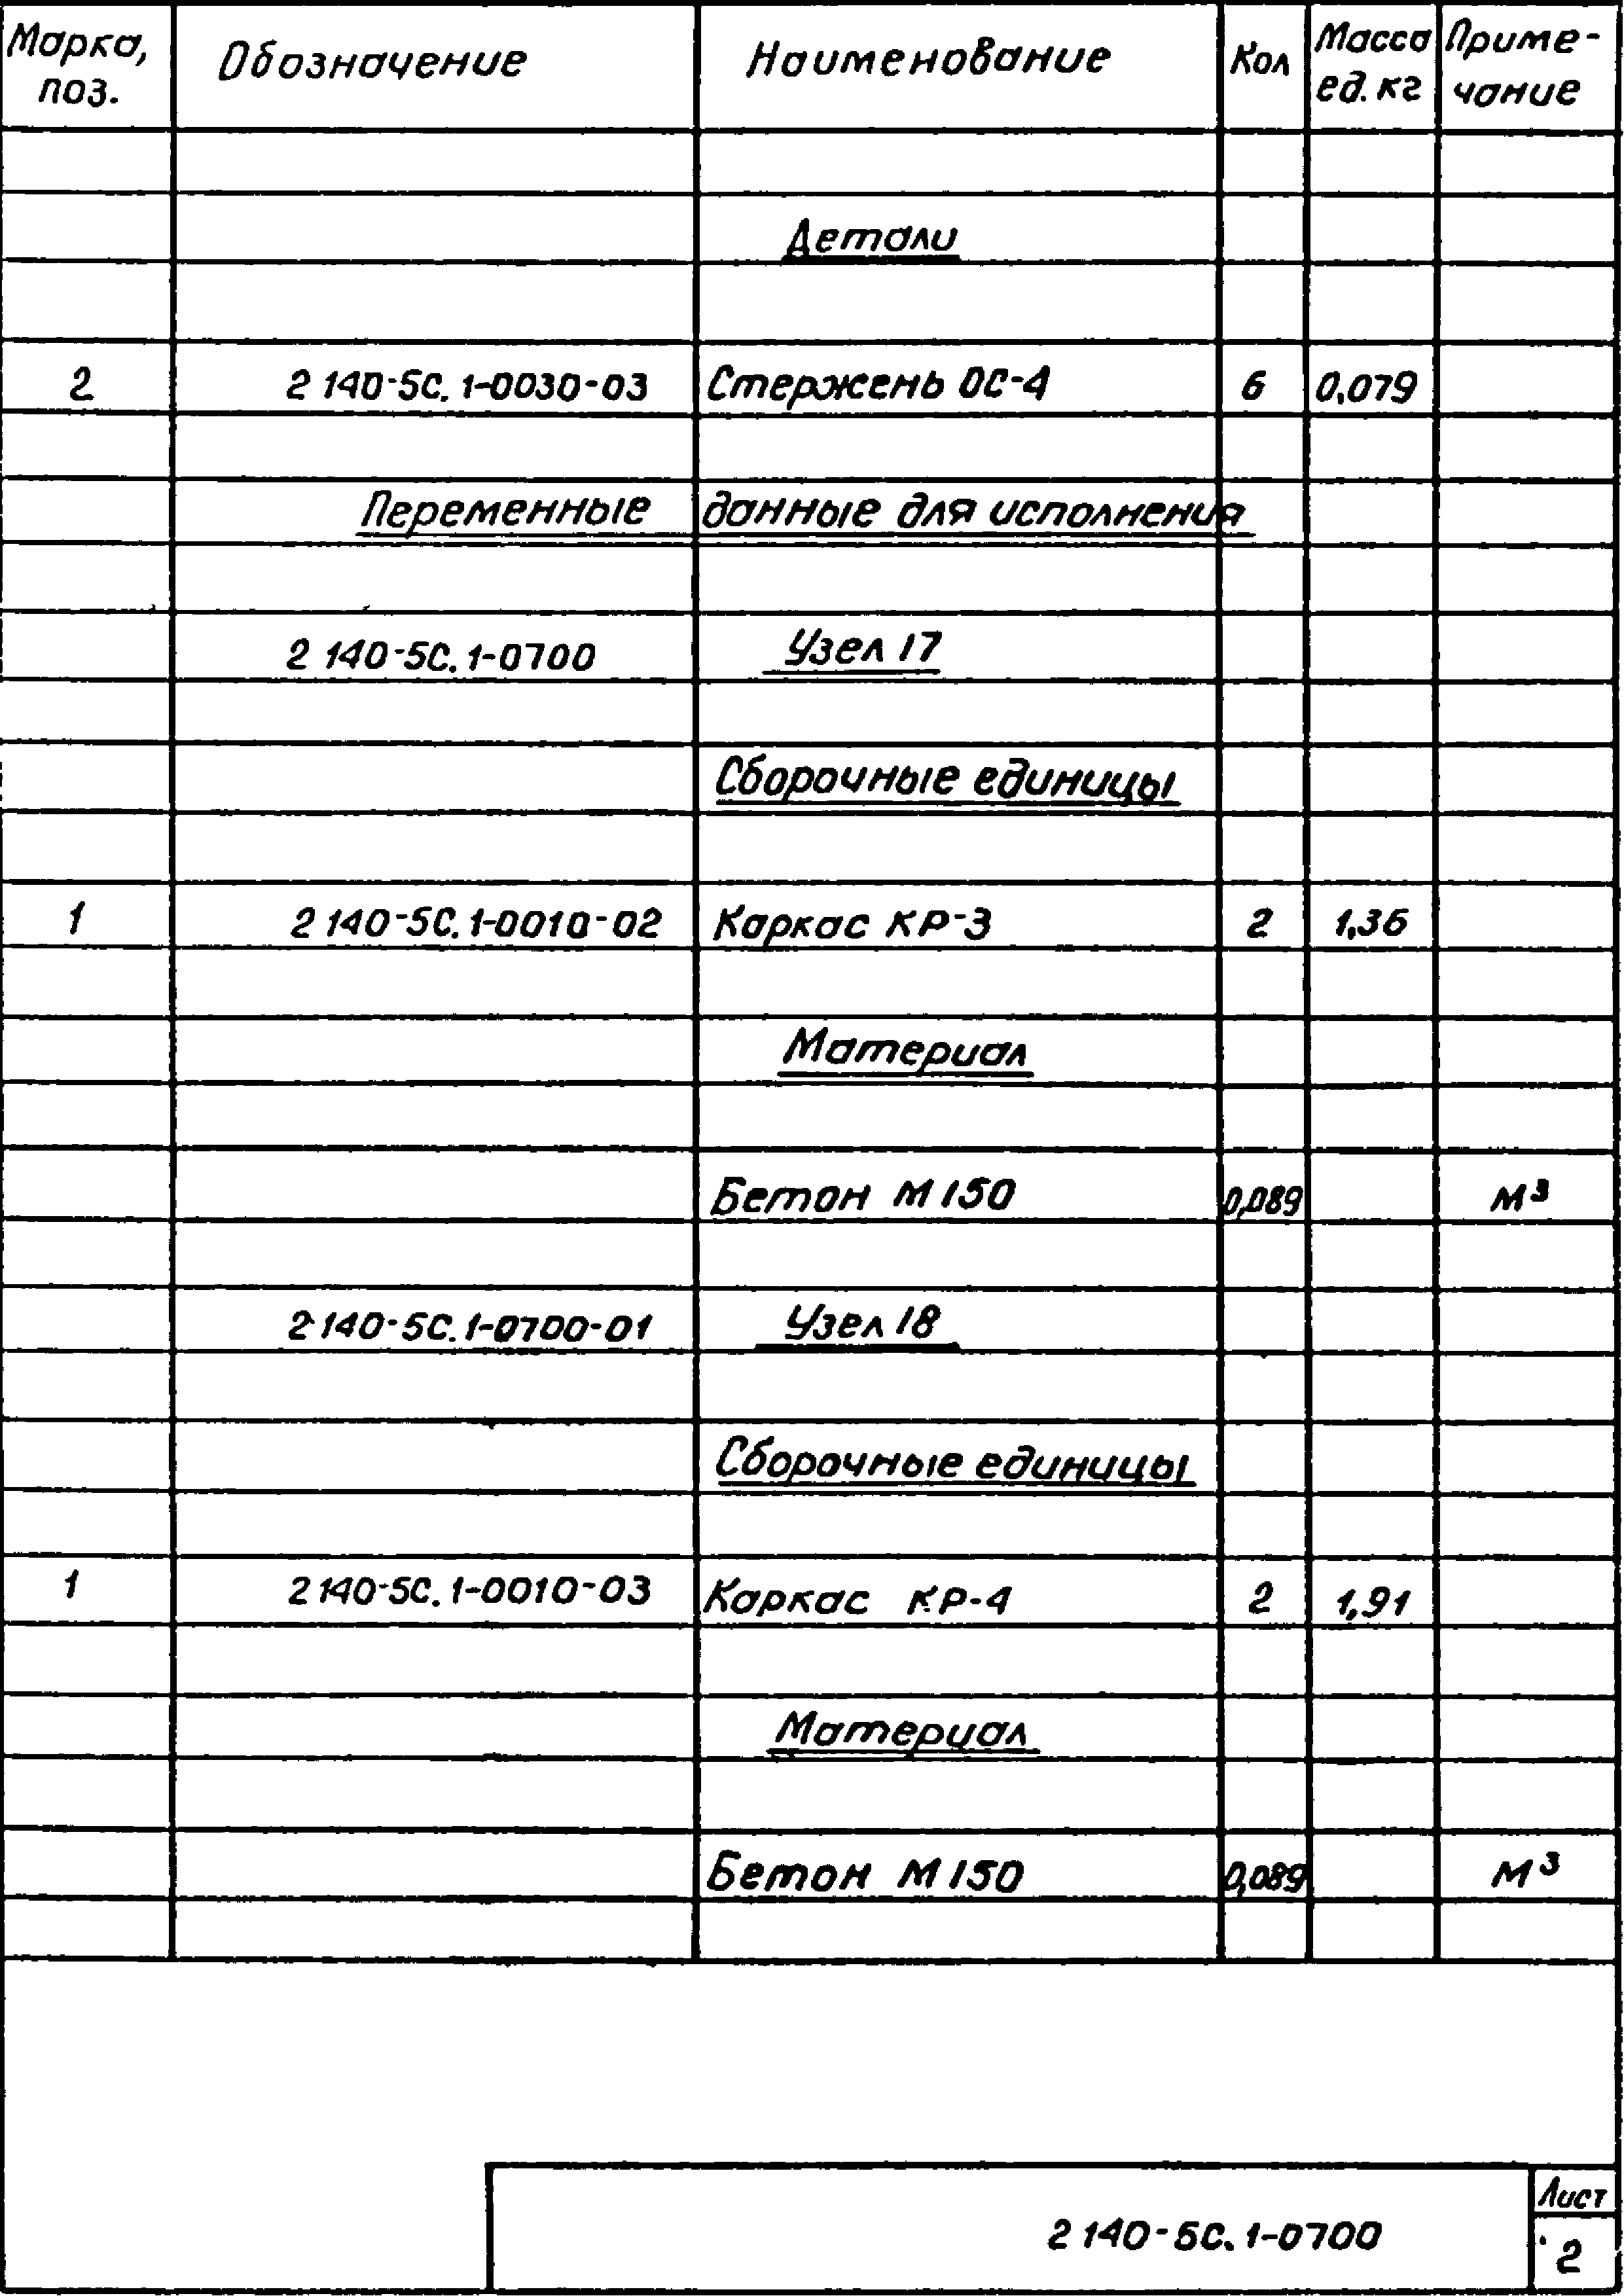 Марка, поз. Обозначение Наименование Кол Масса ед. кг Приме-чание
Детали
2 2 140-5С. 1-0030-03 Стержень ОС-4 6 0,079
Переменные данные для исполнения
2 140-5С. 1-0700 Узел 17
Сборочные единицы
1 2 140-5С. 1-0010-02 Каркас КР-3 2 1,36
Материал
Бетон М 150 0,089 м³
2 140-5С. 1-0700-01 Узел 18
Сборочные единицы
1 2 140-5С. 1-0010-03 Каркас КР-4 2 1,91
Материал
Бетон М 150 0,089 м³
2 140-5С. 1-0700
Лист
2